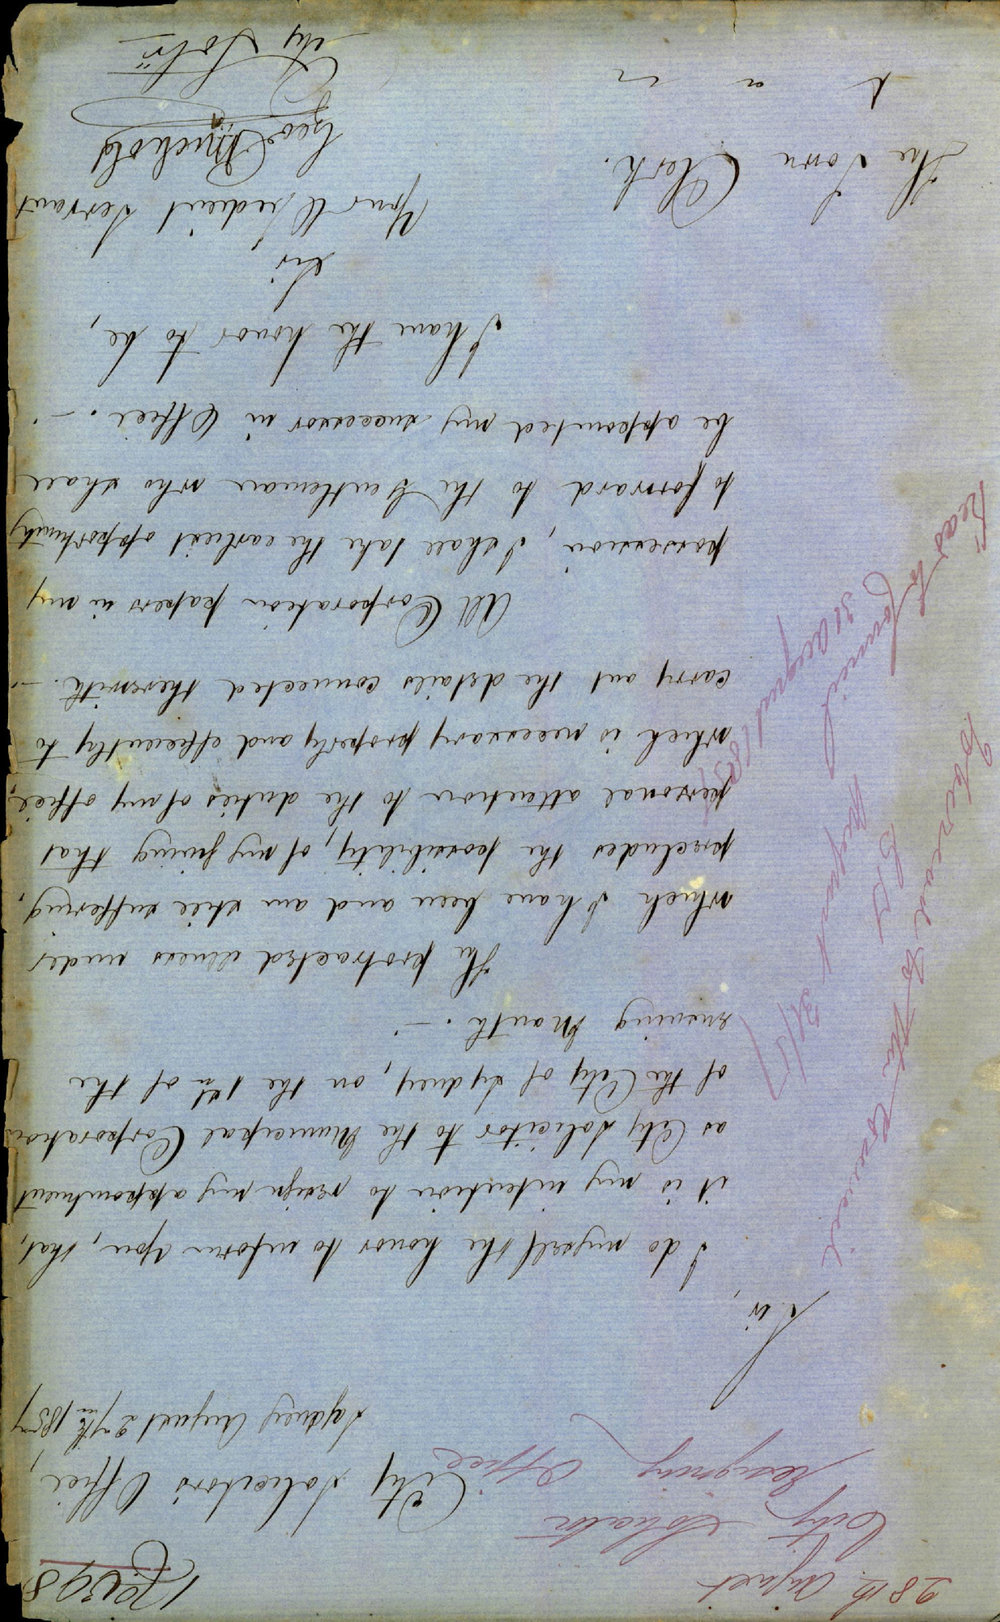 28th August
City Solicitor
Resigning Office
City Solicitors Office,
Sydney August 27th 1857
Sir,
I do myself the honor to inform you, that,
it is my intention to resign my appointment
as City Solicitor to the Municipal Corporation
of the City of Sydney, on the 1st of the
ensuing Month. —
The protracted illness under
which I have been and am still suffering,
precludes the possibility, of my giving that
personal attention to the duties of my office,
which is necessary properly and efficiently to
carry out the details connected therewith. —
All Corporation papers in my
possession, I shall take the earliest opportunity
to forward to the Gentleman who shall
be appointed my successor in Office. —
I have the honor to be,
Sir
Your Obedient Servant
Geo Nichols
City Solr
The Town Clerk.
Read to Council
31 August 1857
to the Council